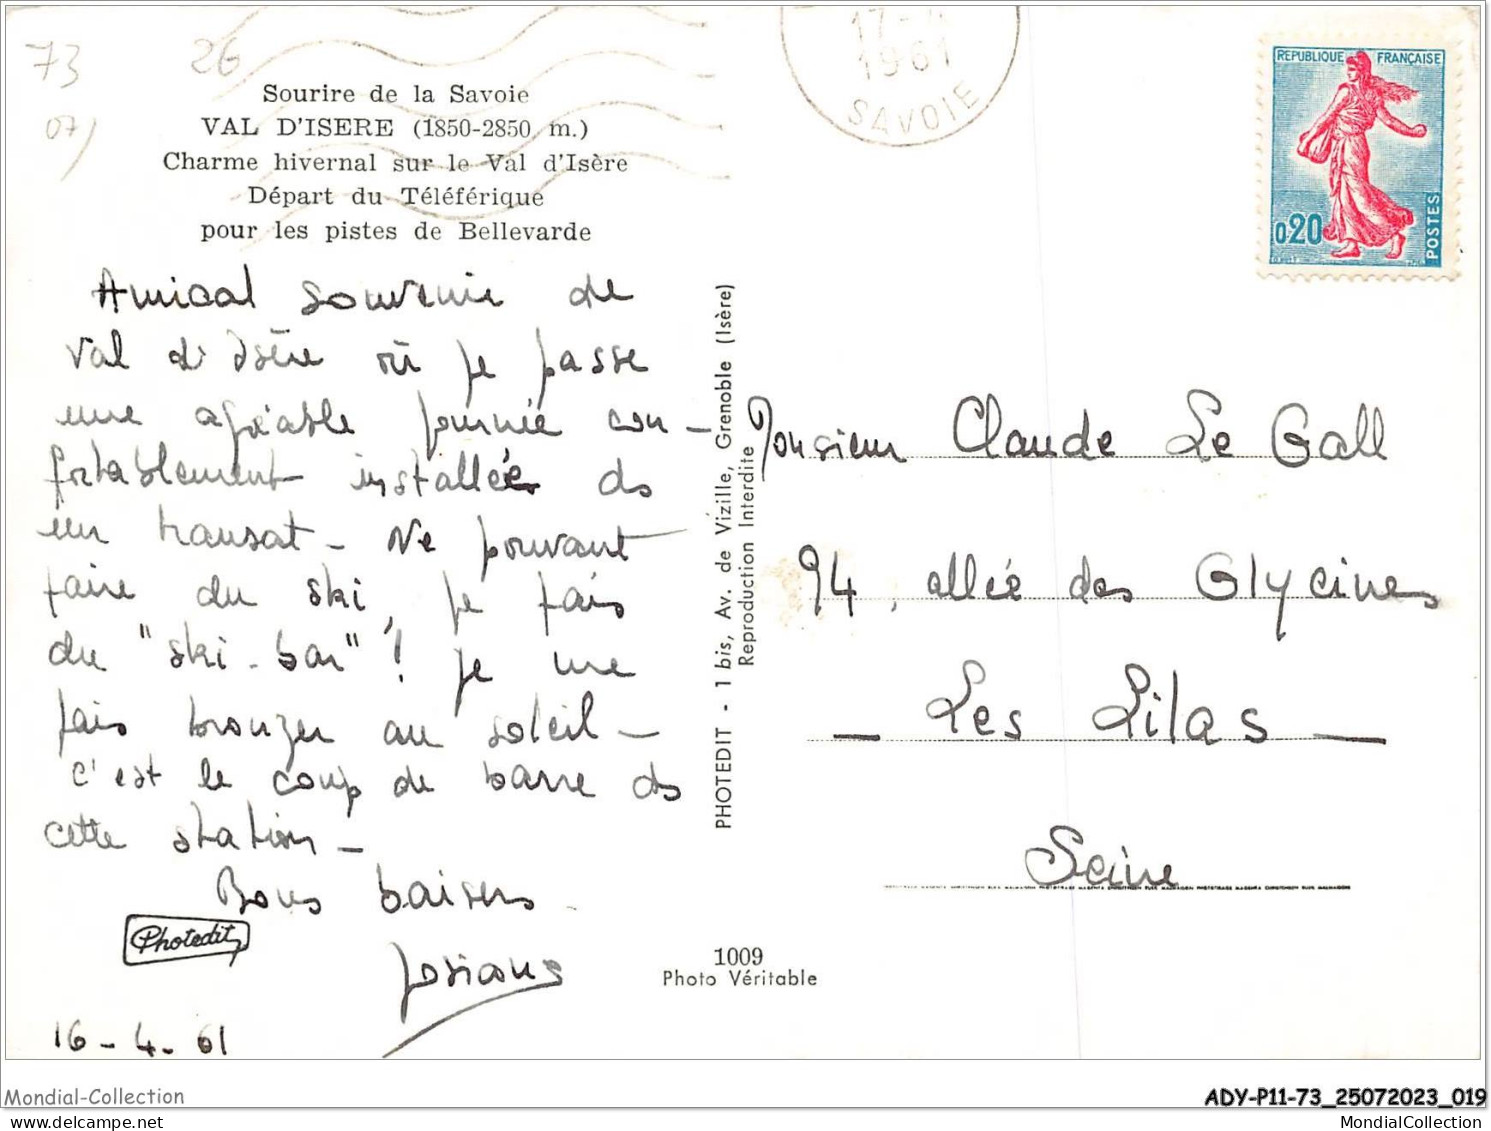 73
26
07/
Sourire de la Savoie
VAL D'ISERE (1850-2850 m.)
Charme hivernal sur le Val d'Isère
Départ du Téléférique
pour les pistes de Bellevarde
17-4
1961
SAVOIE
REPUBLIQUE FRANÇAISE
0,20
POSTES
Amical souvenir de
Val d'Isère où je passe
une agréable journée con-
fortablement installée ds
un transat - Ne pouvant
faire du ski, je fais
du "ski-bar"! je me
fais bronzer au soleil -
c'est le coup de barre ds
cette station -
Bons baisers
Josiane
16-4-61
Photedit
PHOTEDIT - 1 bis, Av. de Vizille, Grenoble (Isère)
Reproduction Interdite
Monsieur Claude Le Gall
94, allée des Glycines
- Les Lilas -
Seine
1009
Photo Véritable
Mondial-Collection
ADY-P11-73_25072023_019
MondialCollection